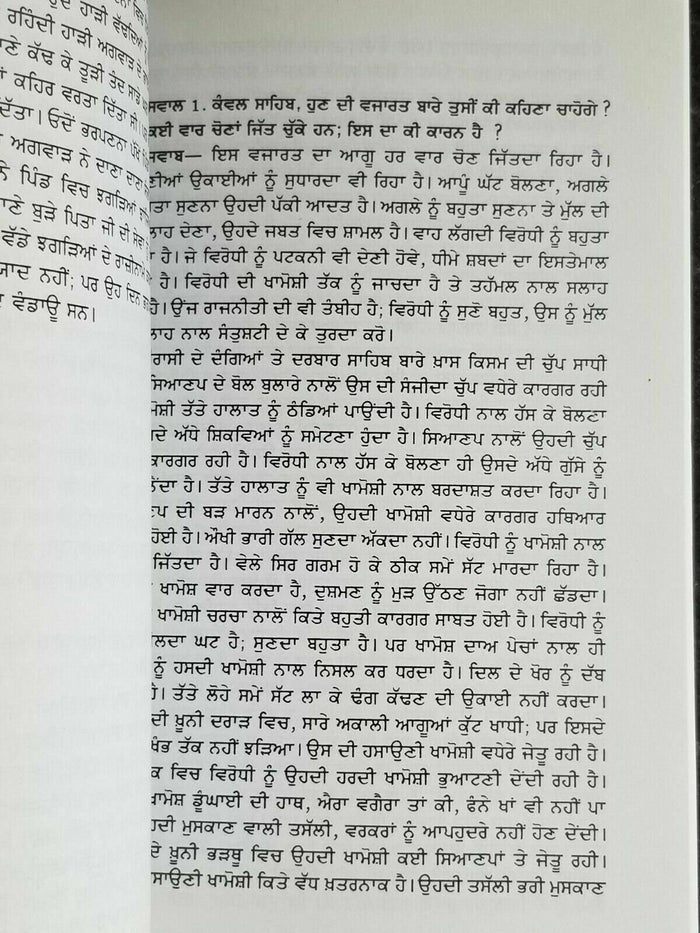 ਰਹਿੰਦੀ ਹਾੜੀ ਅਗਵਾੜ ਦੇ
ਕੱਢ ਕੇ ਤੂੜੀ ਤੰਦ ਸਾਡੇ
ਕਹਿਰ ਵਰਤਾ ਦਿੱਤਾ ਸੀ।
ਦਿੱਤਾ। ਓਦੋਂ ਭਰਪਣਨਾ
ਅਗਵਾੜ ਨੇ ਦਾਣਾ ਦਾਣਾ
ਨੇ ਪਿੰਡ ਵਿਚ ਝਗੜਿਆਂ
ਬੁੜੇ ਪਿਤਾ ਜੀ ਦੀ ਸੇਵਾ
ਵੱਡੇ ਝਗੜਿਆਂ ਦੇ ਰਾਜ਼ੀਨਾਮੇ
ਯਾਦ ਨਹੀਂ; ਪਰ ਉਹ ਦਿਨ
ਵੰਡਾਊ ਸਨ।
ਸਵਾਲ 1. ਕੰਵਲ ਸਾਹਿਬ, ਹੁਣ ਦੀ ਵਜਾਰਤ ਬਾਰੇ ਤੁਸੀਂ ਕੀ ਕਹਿਣਾ ਚਾਹੋਗੇ ?
ਕਈ ਵਾਰ ਚੋਣਾਂ ਜਿੱਤ ਚੁੱਕੇ ਹਨ; ਇਸ ਦਾ ਕੀ ਕਾਰਨ ਹੈ ?
ਜਵਾਬ— ਇਸ ਵਜਾਰਤ ਦਾ ਆਗੂ ਹਰ ਵਾਰ ਚੋਣ ਜਿੱਤਦਾ ਰਿਹਾ ਹੈ।
ਣੀਆਂ ਉਕਾਈਆਂ ਨੂੰ ਸੁਧਾਰਦਾ ਵੀ ਰਿਹਾ ਹੈ। ਆਪੂੰ ਘੱਟ ਬੋਲਣਾ, ਅਗਲੇ
ਤਾ ਸੁਨਣਾ ਉਹਦੀ ਪੱਕੀ ਆਦਤ ਹੈ। ਅਗਲੇ ਨੂੰ ਬਹੁਤਾ ਸੁਨਣਾ ਤੇ ਮੁੱਲ ਦੀ
ਲਾਹ ਦੇਣਾ, ਉਹਦੇ ਜਬਤ ਵਿਚ ਸ਼ਾਮਲ ਹੈ। ਵਾਹ ਲੱਗਦੀ ਵਿਰੋਧੀ ਨੂੰ ਬਹੁਤਾ
ਹੈ। ਜੇ ਵਿਰੋਧੀ ਨੂੰ ਪਟਕਨੀ ਵੀ ਦੇਣੀ ਹੋਵੇ, ਧੀਮੇ ਸ਼ਬਦਾਂ ਦਾ ਇਸਤੇਮਾਲ
ਹੈ। ਵਿਰੋਧੀ ਦੀ ਖਾਮੋਸ਼ੀ ਤੱਕ ਨੂੰ ਜਾਚਦਾ ਹੈ ਤੇ ਤਹੱਮਲ ਨਾਲ ਸਲਾਹ
ਹੈ। ਉਂਜ ਰਾਜਨੀਤੀ ਦੀ ਵੀ ਤੰਬੀਹ ਹੈ; ਵਿਰੋਧੀ ਨੂੰ ਸੁਣੋ ਬਹੁਤ, ਉਸ ਨੂੰ ਮੁੱਲ
ਲਾਹ ਨਾਲ ਸੰਤੁਸ਼ਟੀ ਦੇ ਕੇ ਤੁਰਦਾ ਕਰੋ।
ਰਾਸੀ ਦੇ ਦੰਗਿਆਂ ਤੇ ਦਰਬਾਰ ਸਾਹਿਬ ਬਾਰੇ ਖ਼ਾਸ ਕਿਸਮ ਦੀ ਚੁੱਪ ਸਾਧੀ
ਸਿਆਣਪ ਦੇ ਬੋਲ ਬੁਲਾਰੇ ਨਾਲੋਂ ਉਸ ਦੀ ਸੰਜੀਦਾ ਚੁੱਪ ਵਧੇਰੇ ਕਾਰਗਰ ਰਹੀ
ਮੋਸ਼ੀ ਤੱਤੇ ਹਾਲਾਤ ਨੂੰ ਠੰਡਿਆਂ ਪਾਉਂਦੀ ਹੈ। ਵਿਰੋਧੀ ਨਾਲ ਹੱਸ ਕੇ ਬੋਲਣਾ
ਦੇ ਅੱਧੇ ਸ਼ਿਕਵਿਆਂ ਨੂੰ ਸਮੇਟਣਾ ਹੁੰਦਾ ਹੈ। ਸਿਆਣਪ ਨਾਲੋਂ ਉਹਦੀ ਚੁੱਪ
ਕਾਰਗਰ ਰਹੀ ਹੈ। ਵਿਰੋਧੀ ਨਾਲ ਹੱਸ ਕੇ ਬੋਲਣਾ ਹੀ ਉਸਦੇ ਅੱਧੇ ਗੁੱਸੇ ਨੂੰ
ਦਾ ਹੈ। ਤੱਤੇ ਹਾਲਾਤ ਨੂੰ ਵੀ ਖਾਮੋਸ਼ੀ ਨਾਲ ਬਰਦਾਸ਼ਤ ਕਰਦਾ ਰਿਹਾ ਹੈ।
ਪ ਦੀ ਬੜ ਮਾਰਨ ਨਾਲੋਂ, ਉਹਦੀ ਖਾਮੋਸ਼ੀ ਵਧੇਰੇ ਕਾਰਗਰ ਹਥਿਆਰ
ਹੋਈ ਹੈ। ਔਖੀ ਭਾਰੀ ਗੱਲ ਸੁਣਦਾ ਅੱਕਦਾ ਨਹੀਂ। ਵਿਰੋਧੀ ਨੂੰ ਖਾਮੋਸ਼ੀ ਨਾਲ
ਜਿੱਤਦਾ ਹੈ। ਵੇਲੇ ਸਿਰ ਗਰਮ ਹੋ ਕੇ ਠੀਕ ਸਮੇਂ ਸੱਟ ਮਾਰਦਾ ਰਿਹਾ ਹੈ।
ਖਾਮੋਸ਼ ਵਾਰ ਕਰਦਾ ਹੈ, ਦੁਸ਼ਮਣ ਨੂੰ ਮੁੜ ਉੱਠਣ ਜੋਗਾ ਨਹੀਂ ਛੱਡਦਾ।
ਖਾਮੋਸ਼ੀ ਚਰਚਾ ਨਾਲੋਂ ਕਿਤੇ ਬਹੁਤੀ ਕਾਰਗਰ ਸਾਬਤ ਹੋਈ ਹੈ। ਵਿਰੋਧੀ ਨੂੰ
ਲਦਾ ਘਟ ਹੈ; ਸੁਣਦਾ ਬਹੁਤਾ ਹੈ। ਪਰ ਖਾਮੋਸ਼ ਦਾਅ ਪੇਚਾਂ ਨਾਲ ਹੀ
ਨੂੰ ਹਸਦੀ ਖਾਮੋਸ਼ੀ ਨਾਲ ਨਿਸਲ ਕਰ ਧਰਦਾ ਹੈ। ਦਿਲ ਦੇ ਖੋਰ ਨੂੰ ਦੱਬ
ਹੈ। ਤੱਤੇ ਲੋਹੇ ਸਮੇਂ ਸੱਟ ਲਾ ਕੇ ਢੰਗ ਕੱਢਣ ਦੀ ਉਕਾਈ ਨਹੀਂ ਕਰਦਾ।
ਦੀ ਖ਼ੂਨੀ ਦਰਾੜ ਵਿਚ, ਸਾਰੇ ਅਕਾਲੀ ਆਗੂਆਂ ਕੁੱਟ ਖਾਧੀ; ਪਰ ਇਸਦੇ
ਖੰਭ ਤੱਕ ਨਹੀਂ ਝੜਿਆ। ਉਸ ਦੀ ਹਸਾਉਣੀ ਖਾਮੋਸ਼ੀ ਵਧੇਰੇ ਜੇਤੂ ਰਹੀ ਹੈ।
ਕ ਵਿਚ ਵਿਰੋਧੀ ਨੂੰ ਉਹਦੀ ਹਰਦੀ ਖਾਮੋਸ਼ੀ ਭੁਆਟਣੀ ਦੇਂਦੀ ਰਹੀ ਹੈ।
ਖਾਮੋਸ਼ ਡੂੰਘਾਈ ਦੀ ਹਾਥ, ਐਰਾ ਵਗੈਰਾ ਤਾਂ ਕੀ, ਫੰਨੇ ਖਾਂ ਵੀ ਨਹੀਂ ਪਾ
ਹਦੀ ਮੁਸਕਾਣ ਵਾਲੀ ਤਸੱਲੀ, ਵਰਕਰਾਂ ਨੂੰ ਆਪਹੁਦਰੇ ਨਹੀਂ ਹੋਣ ਦੇਂਦੀ।
ਦੇ ਖ਼ੂਨੀ ਭੜਥੂ ਵਿਚ ਉਹਦੀ ਖਾਮੋਸ਼ੀ ਕਈ ਸਿਆਣਪਾਂ ਤੇ ਜੇਤੂ ਰਹੀ।
ਸਾਉਣੀ ਖਾਮੋਸ਼ੀ ਕਿਤੇ ਵੱਧ ਖ਼ਤਰਨਾਕ ਹੈ। ਉਹਦੀ ਤਸੱਲੀ ਭਰੀ ਮੁਸਕਾਣ